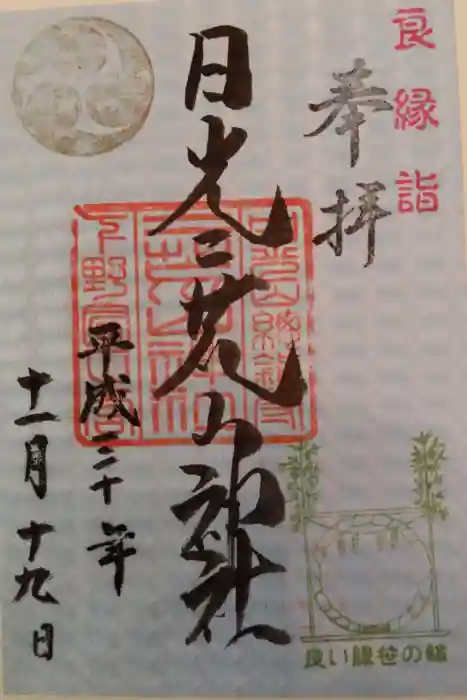 良縁詣
奉拝
日光二荒山神社
平成三十年
十一月十九日
良い縁笹の輪